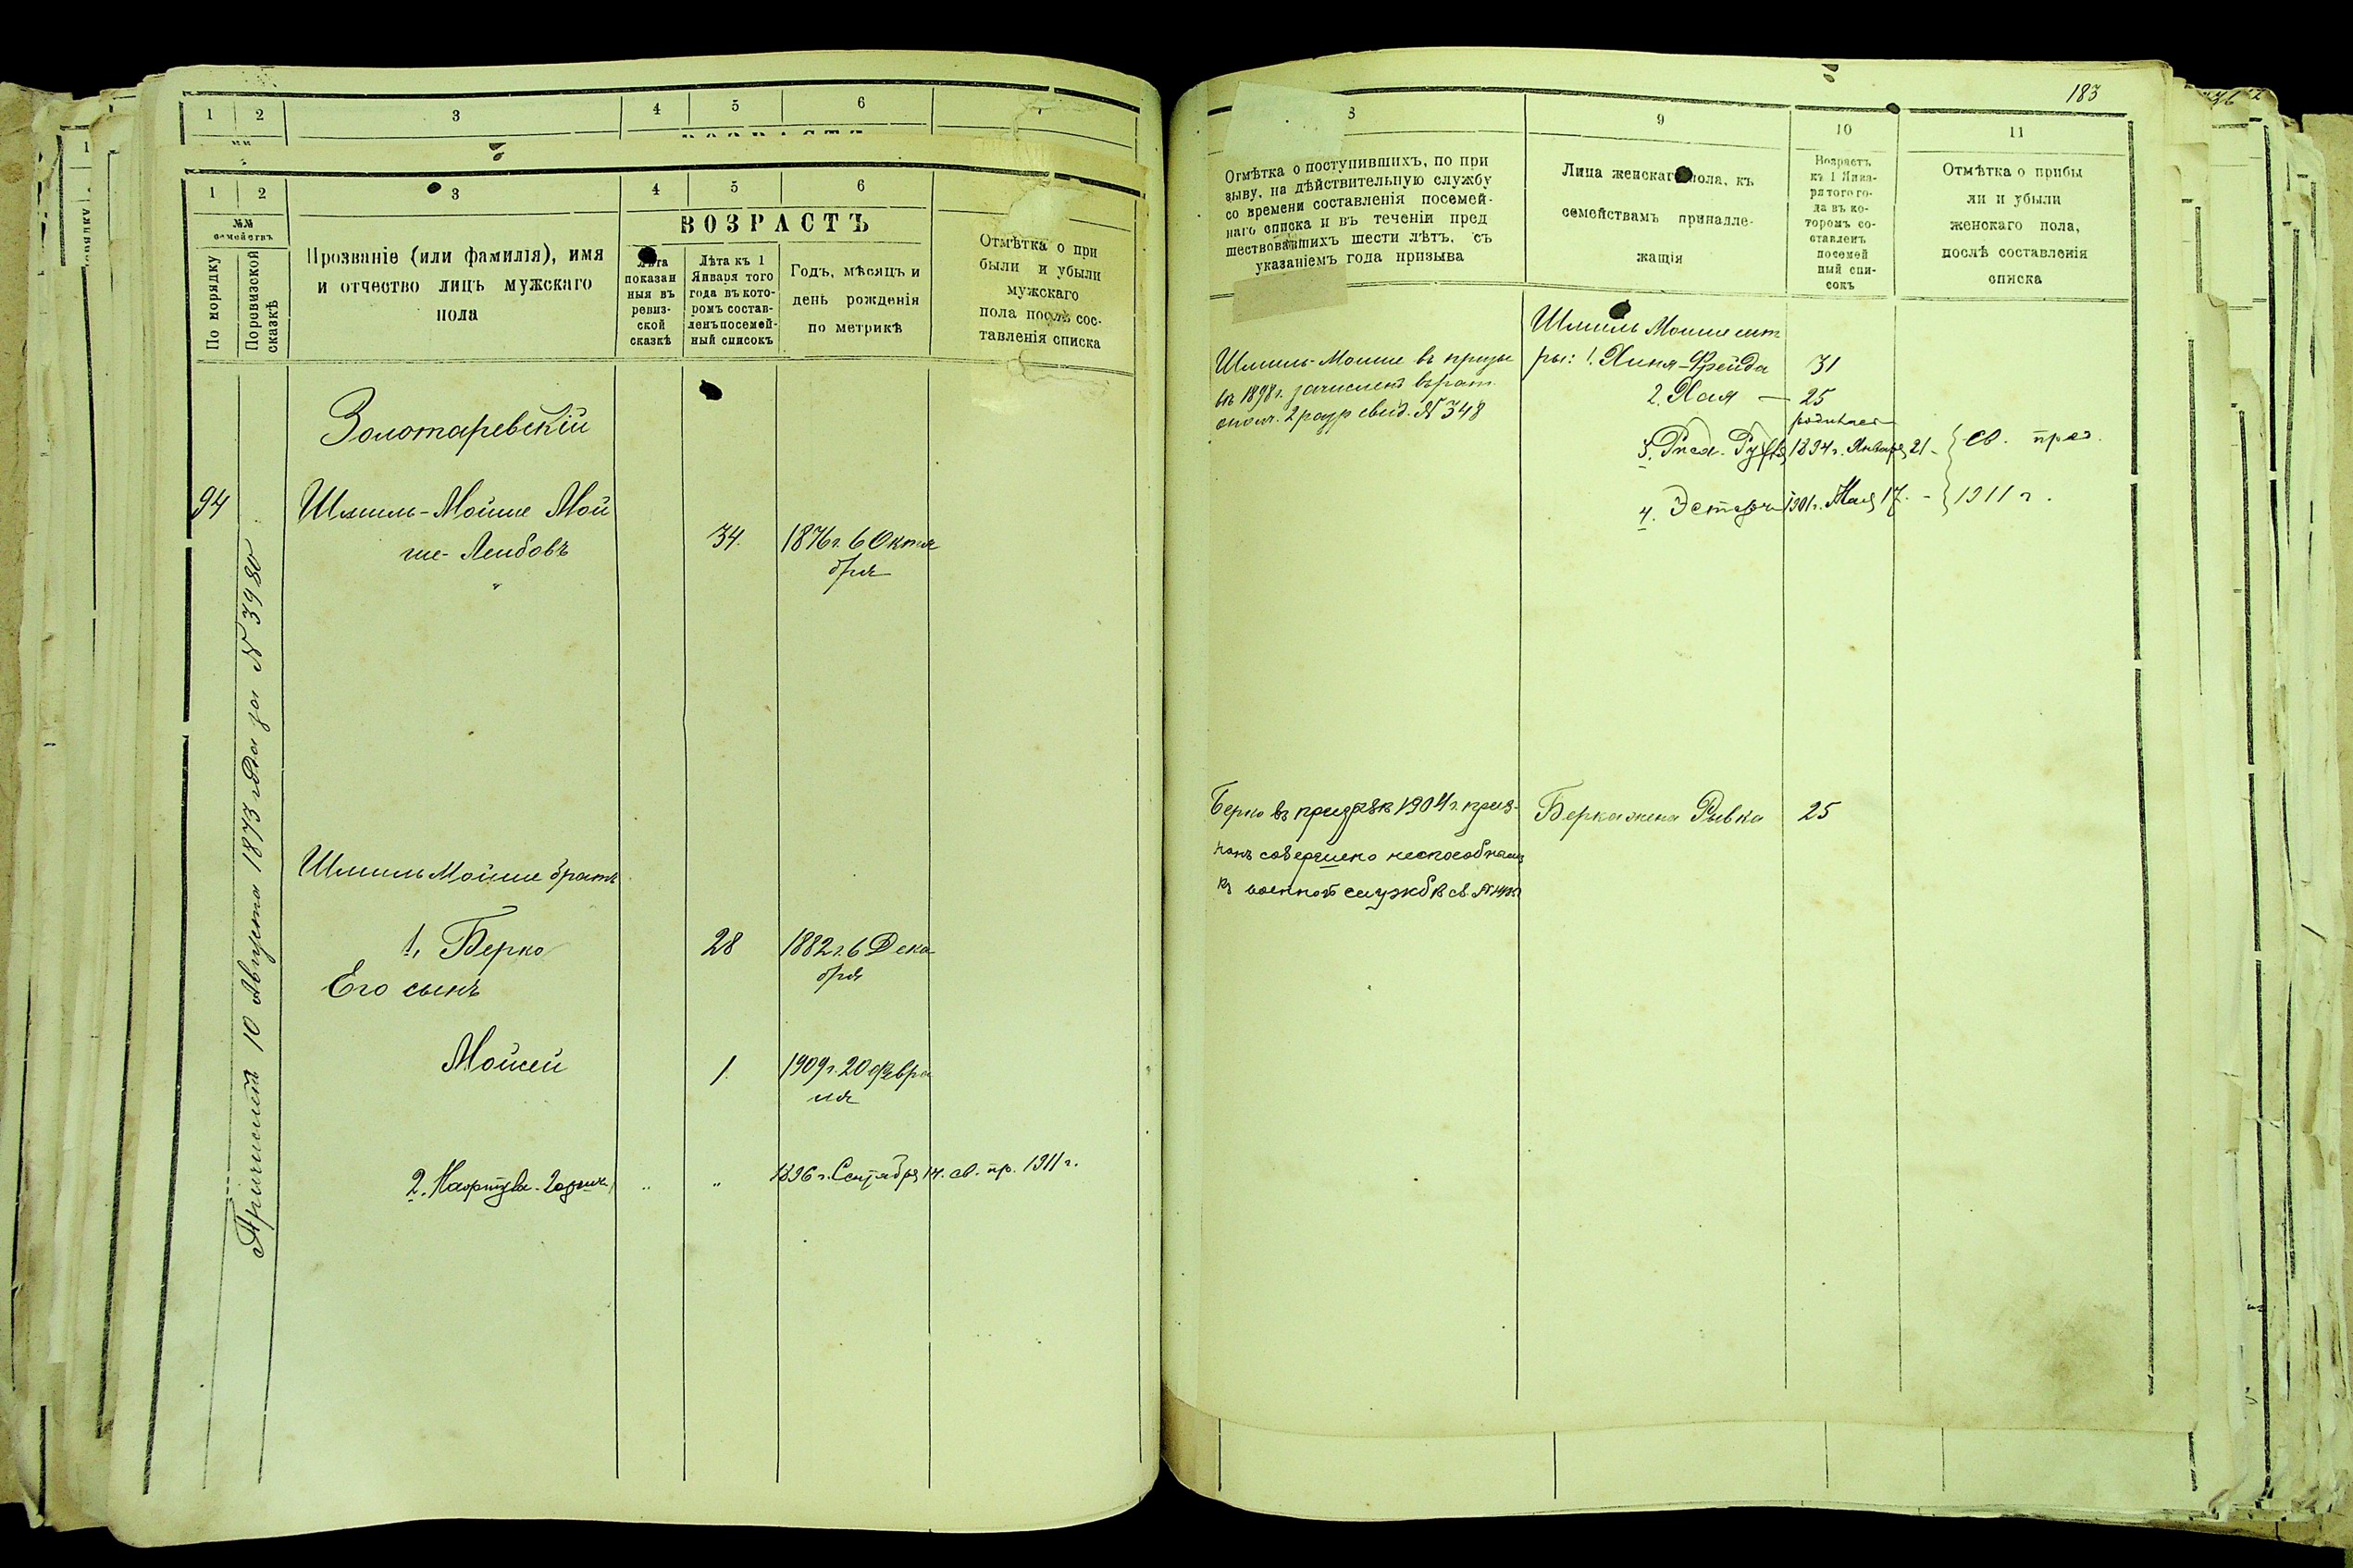 1 2 3 4 5 6
1 2 3 4 5 6
№№ семействъ
По порядку
По ревизской сказкѣ
Прозваніе (или фамилія), имя
и отчество лицъ мужскаго
пола
ВОЗРАСТЪ
Лѣта
показан
ныя въ
ревиз-
ской
сказкѣ
Лѣта къ 1
Января того
года въ кото-
ромъ состав-
ленъ посемей-
ный списокъ
Годъ, мѣсяцъ и
день рожденія
по метрикѣ
Отмѣтка о при
были и убыли
мужскаго
пола послѣ сос-
тавленія списка
Золотаревскій
94 Шмиль-Мойше Мой
ше-Лейбовъ 34. 1876 г. 6 Октя
бря
10 Августа 1873 года за № 3980
Шмиль Мойше братъ
1, Берко 28 1882 г. 6 Дека
бря
Его сынъ
Мойсей 1. 1909 г. 20 Февра
ля
2. 1896 г. Сентября 14. св. пр. 1911 г.
183
8 9 10 11
Отмѣтка о поступившихъ, по при
зыву, на дѣйствительную службу
со времени составленія посемей-
наго списка и въ теченіи пред
шествовавшихъ шести лѣтъ, съ
указаніемъ года призыва
Лица женскаго пола, къ
семействамъ принадле-
жащія
Возрастъ
къ 1 Янва-
ря того го-
да въ ко-
торомъ со-
ставленъ
посемей
ный спи-
сокъ
Отмѣтка о прибы
ли и убыли
женскаго пола,
послѣ составленія
списка
Шмиль-Мойше въ призы
въ 1898 г. зачисленъ въ рат.
опол. 2 разр свид. № 348
Шмиль Мойше сест
ры: 1. Хиня-Фрейда 31
2. Хая — 25
родилась
3. 1894 г. Января 21 - св. пред.
4. Эстеръ 1901 г. Мая 17. - 1911 г.
Берко въ призывъ 1904 г. приз-
нанъ совершено неспособнымъ
къ военной службѣ св. №
Берка жена Рывка 25